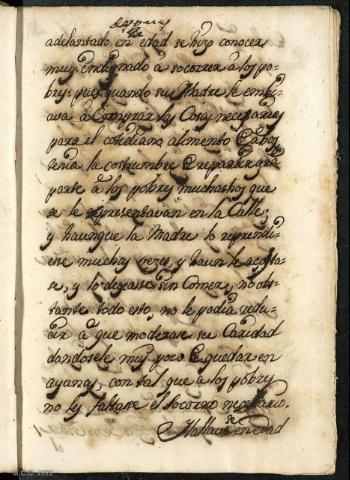 despues
adelantado en edad se hizo conocer
muy inclinado à socorrer à los po=
bres: pues quando su Madre le embi=
ava à Comprar las Cosas necessarias
para el cotidiano alimento
tenia la costumbre repartir gra
parte à los pobres muchachos que
se le representavan en la Calle,
y haunque la Madre lo reprendi=
esse muchas veces, y haun le acosta=
se, y lo dexasse sin Comer, no obs=
tante todo esto, no le podia redu=
cir à que moderase su Caridad
dandosele muy poco quedar en
ayunas, con tal que a los pobres
no les faltasse el socorro necessario.
Hallavase en edad